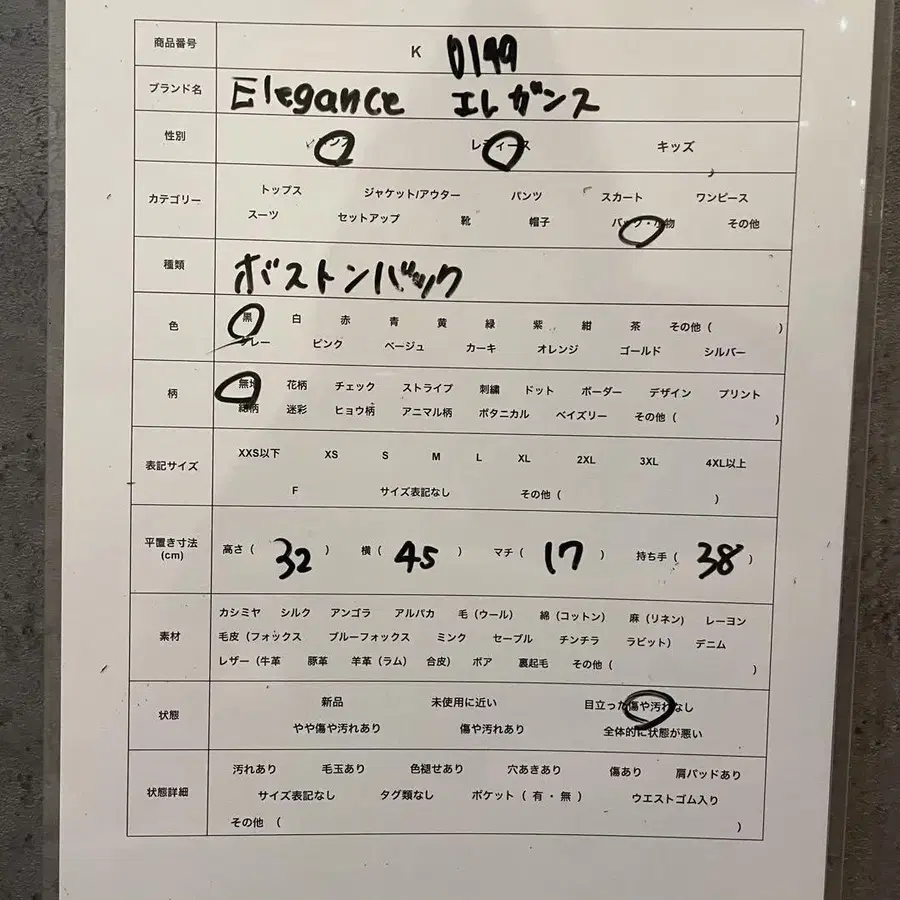 商品番号 K 0199
ブランド名 Elegance エレガンス
性別 メンズ レディース キッズ
カテゴリー トップス ジャケット/アウター パンツ スカート ワンピース
スーツ セットアップ 靴 帽子 バッグ・小物 その他
種類 ボストンバック
色 黒 白 赤 青 黄 緑 紫 紺 茶 その他 ( )
グレー ピンク ベージュ カーキ オレンジ ゴールド シルバー
柄 無地 花柄 チェック ストライプ 刺繍 ドット ボーダー デザイン プリント
総柄 迷彩 ヒョウ柄 アニマル柄 ボタニカル ペイズリー その他 ( )
表記サイズ XXS以下 XS S M L XL 2XL 3XL 4XL以上
F サイズ表記なし その他 ( )
平置き寸法 (cm) 高さ ( 32 ) 横 ( 45 ) マチ ( 17 ) 持ち手 ( 38 )
素材 カシミヤ シルク アンゴラ アルパカ 毛 (ウール) 綿 (コットン) 麻 (リネン) レーヨン
毛皮 (フォックス ブルーフォックス ミンク セーブル チンチラ ラビット) デニム
レザー (牛革 豚革 羊革 (ラム) 合皮) ボア 裏起毛 その他 ( )
状態 新品 未使用に近い 目立った傷や汚れなし
やや傷や汚れあり 傷や汚れあり 全体的に状態が悪い
状態詳細 汚れあり 毛玉あり 色褪せあり 穴あきあり 傷あり 肩パッドあり
サイズ表記なし タグ類なし ポケット ( 有 ・ 無 ) ウエストゴム入り
その他 ( )